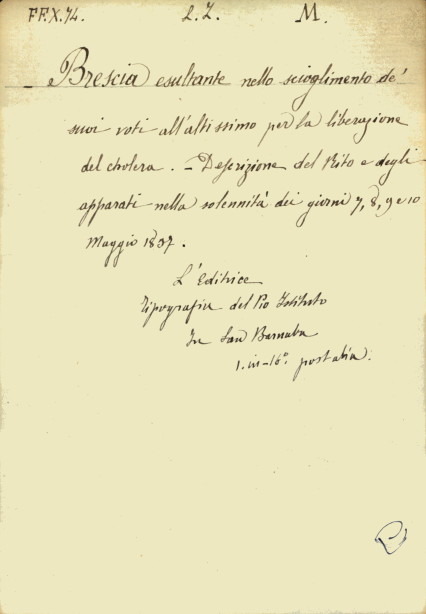 FF.X.74. L.Z. M.
Brescia esultante nello scioglimento de'
suoi voti all'altissimo per la liberazione
del cholera. - Descrizione del Rito e degli
apparati nella solennità dei giorni 7, 8, 9 e 10
Maggio 1837.
L'Editrice
Tipografia del Pio Istituto
In San Barnaba
1. in-16°.